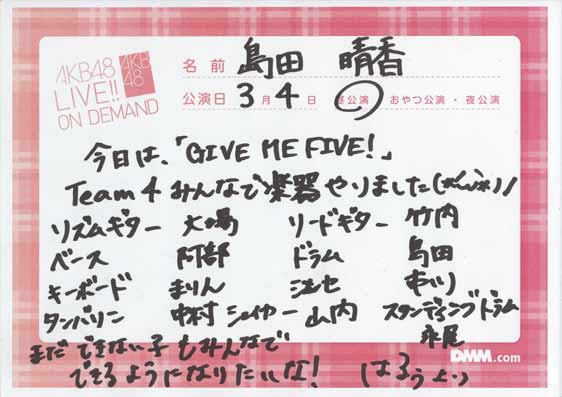 AKB48
LIVE!!
ON DEMAND
AKB
48
名前 島田 晴香
公演日 3月4日 昼公演 おやつ公演・夜公演
今日は、「GIVE ME FIVE!」
Team4みんなで楽器やりました
リズムギター 大場 リードギター 竹内
ベース 阿部 ドラム 島田
キーボード まりん
タンバリン 中村 シェイカー 山内 スタンディングドラム
永尾
まだできない子もみんなで
できるようになりたいな! はるぅ
DMM.com